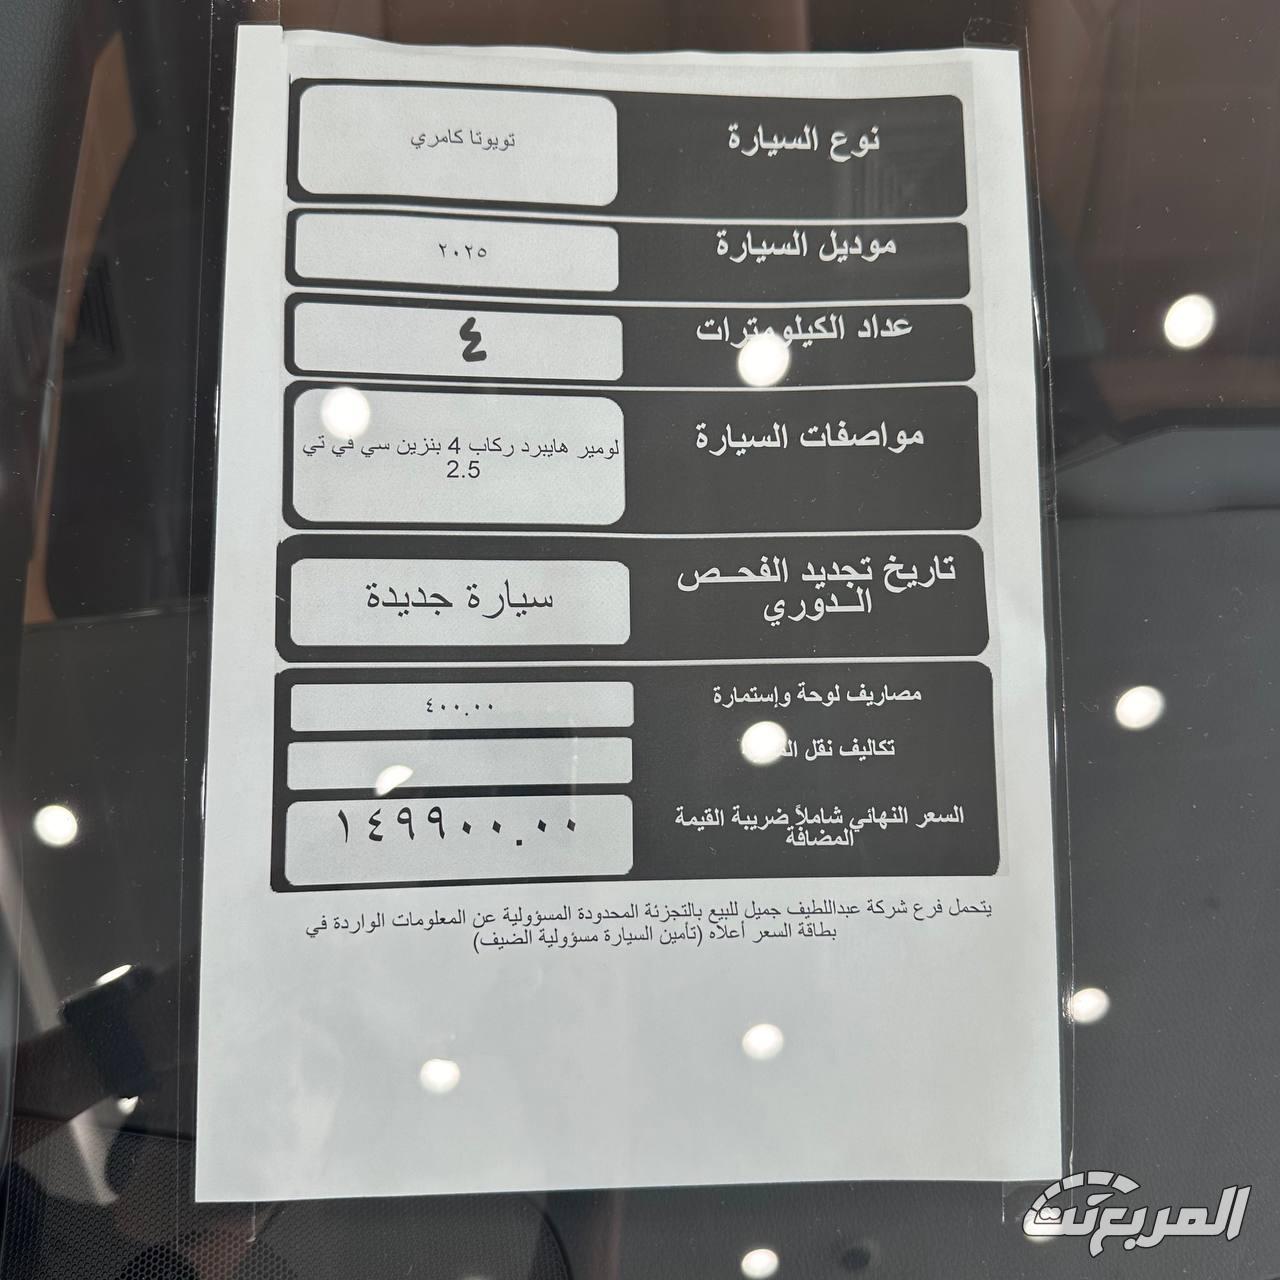 نوع السيارة
تويوتا كامري
موديل السيارة
٢٠٢٥
عداد الكيلومترات
٤
مواصفات السيارة
لومير هايبرد ركاب 4 بنزين سي في تي
2.5
تاريخ تجديد الفحــص
الــدوري
سيارة جديدة
مصاريف لوحة وإستمارة
٤٠٠.٠٠
تكاليف نقل
السعر النهائي شاملاً ضريبة القيمة
المضافة
١٤٩٩٠٠.٠٠
يتحمل فرع شركة عبداللطيف جميل للبيع بالتجزئة المحدودة المسؤولية عن المعلومات الواردة في
بطاقة السعر أعلاه (تأمين السيارة مسؤولية الضيف)
المربع نت